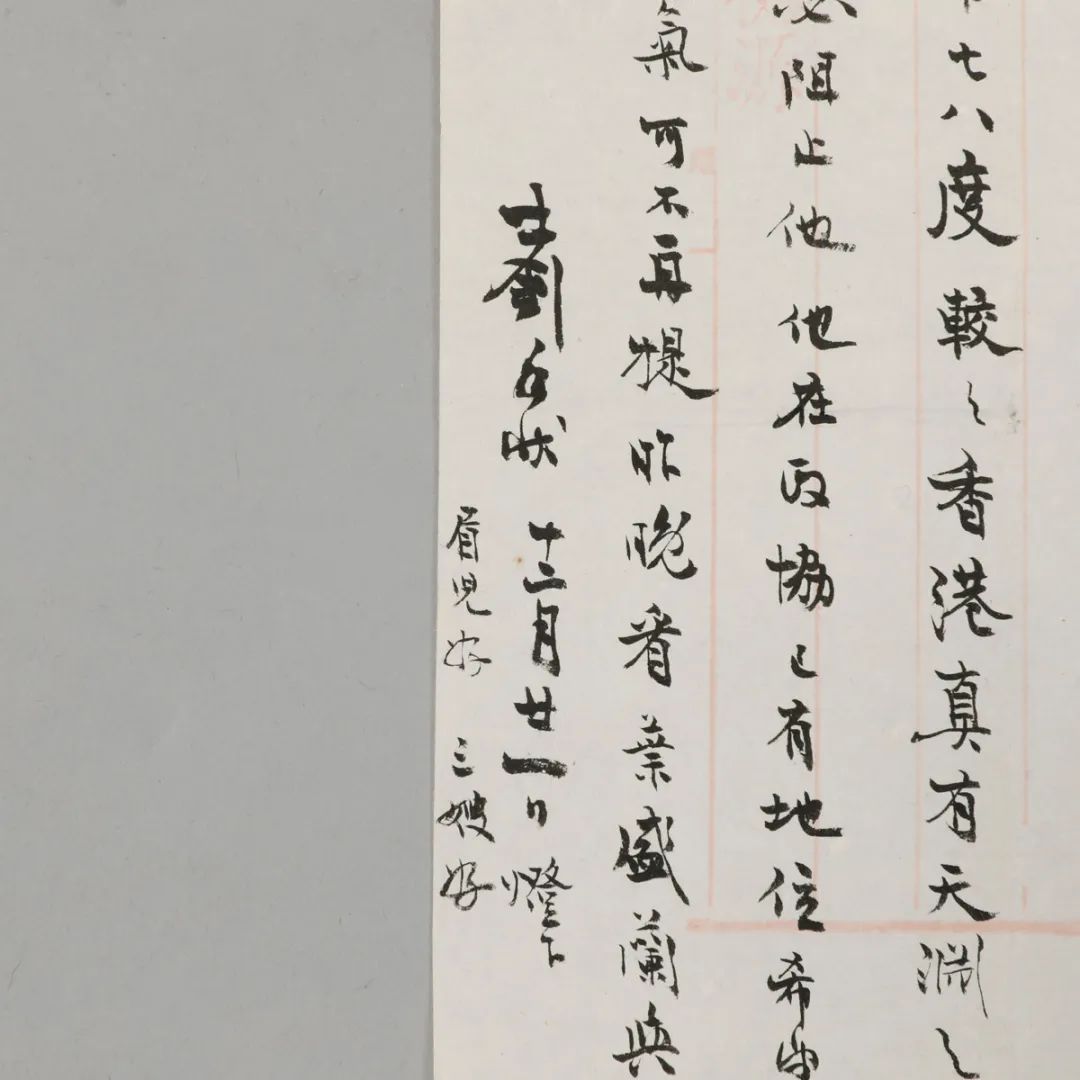 七八度較之香港真有天淵之
必阻止他他在政協已有地位希
氣可不再提昨晚看葉盛蘭與
十二月廿一日燈下
眉兒好 三嫂好